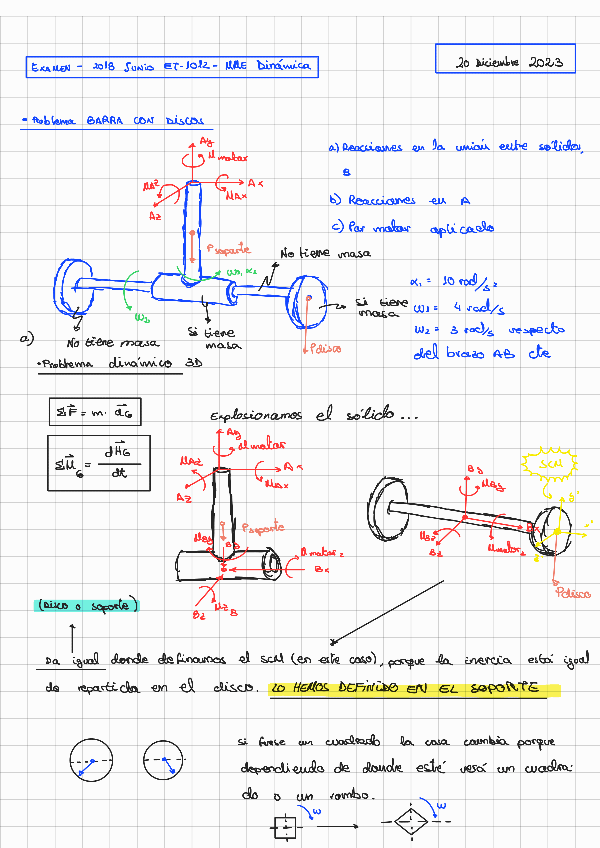 EXAMEN - 2018 JUNIO ET-1012 - MAE Dinámica
20 Diciembre 2023
• Problema BARRA CON DISCOS
a) Reacciones en la unión entre sólidos,
B
b) Reacciones en A
c) Par motor aplicado
Ay
M motor
Ax
MAx
MAz
Az
P soporte
No tiene masa
ω1, α1
α1 = 10 rad/s²
ω1 = 4 rad/s
ω2 = 3 rad/s respecto
del brazo AB cte
ω2
Si tiene
masa
Pdisco
a)
No tiene masa
Si tiene
masa
• Problema dinámico 3D
ΣF = m · aG
ΣMG = dHG / dt
Explosionamos el sólido ...
Ay
M motor
MAz
Ax
MAx
Az
P soporte
MBy
By
M motor2
Bx
Bz
MB
By
MBy
MBz
Bz
M motor2
SCM
Pdisco
(Disco o soporte)
Da igual donde definamos el SCM (en este caso), porque la inercia está igual
de repartida en el disco. LO HEMOS DEFINIDO EN EL SOPORTE
si fuese un cuadrado la cosa cambia porque
dependiendo de donde esté verá un cuadra-
do o un rombo.
ω
ω